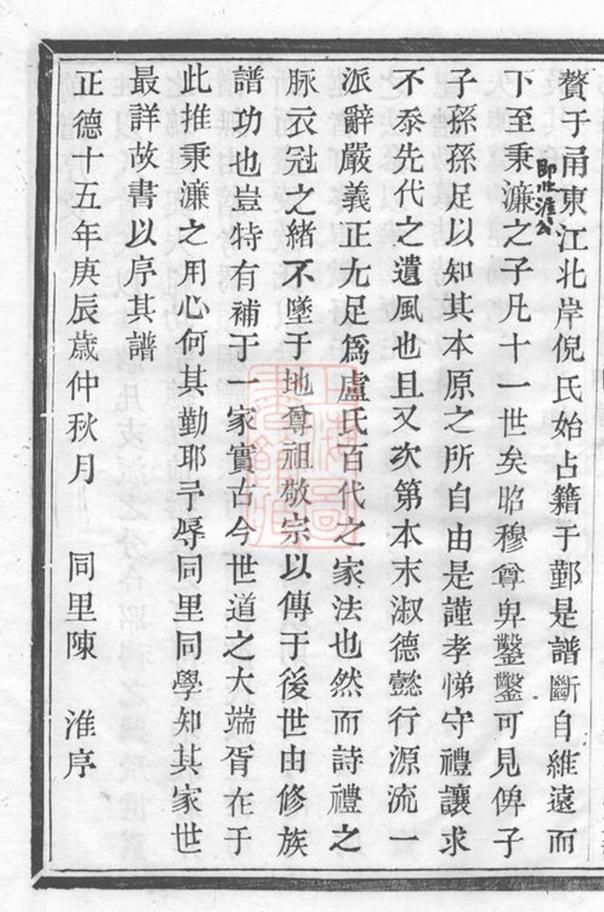 贅于甬東江北岸倪氏始占籍于鄞是譜斷自維遠而
下至秉濂之子凡十一世矣昭穆尊卑鑿鑿可見俾子
子孫孫足以知其本原之所自由是謹孝悌守禮讓求
不忝先代之遺風也且又次第本末淑德懿行源流一
派辭嚴義正尢足爲盧氏百代之家法也然而詩禮之
脉衣冠之緒不墜于地尊祖敬宗以傳于後世由修族
譜功也豈特有補于一家實古今世道之大端胥在于
此推秉濂之用心何其勤耶予辱同里同學知其家世
最詳故書以序其譜
正德十五年庚辰歲仲秋月 同里陳 淮序